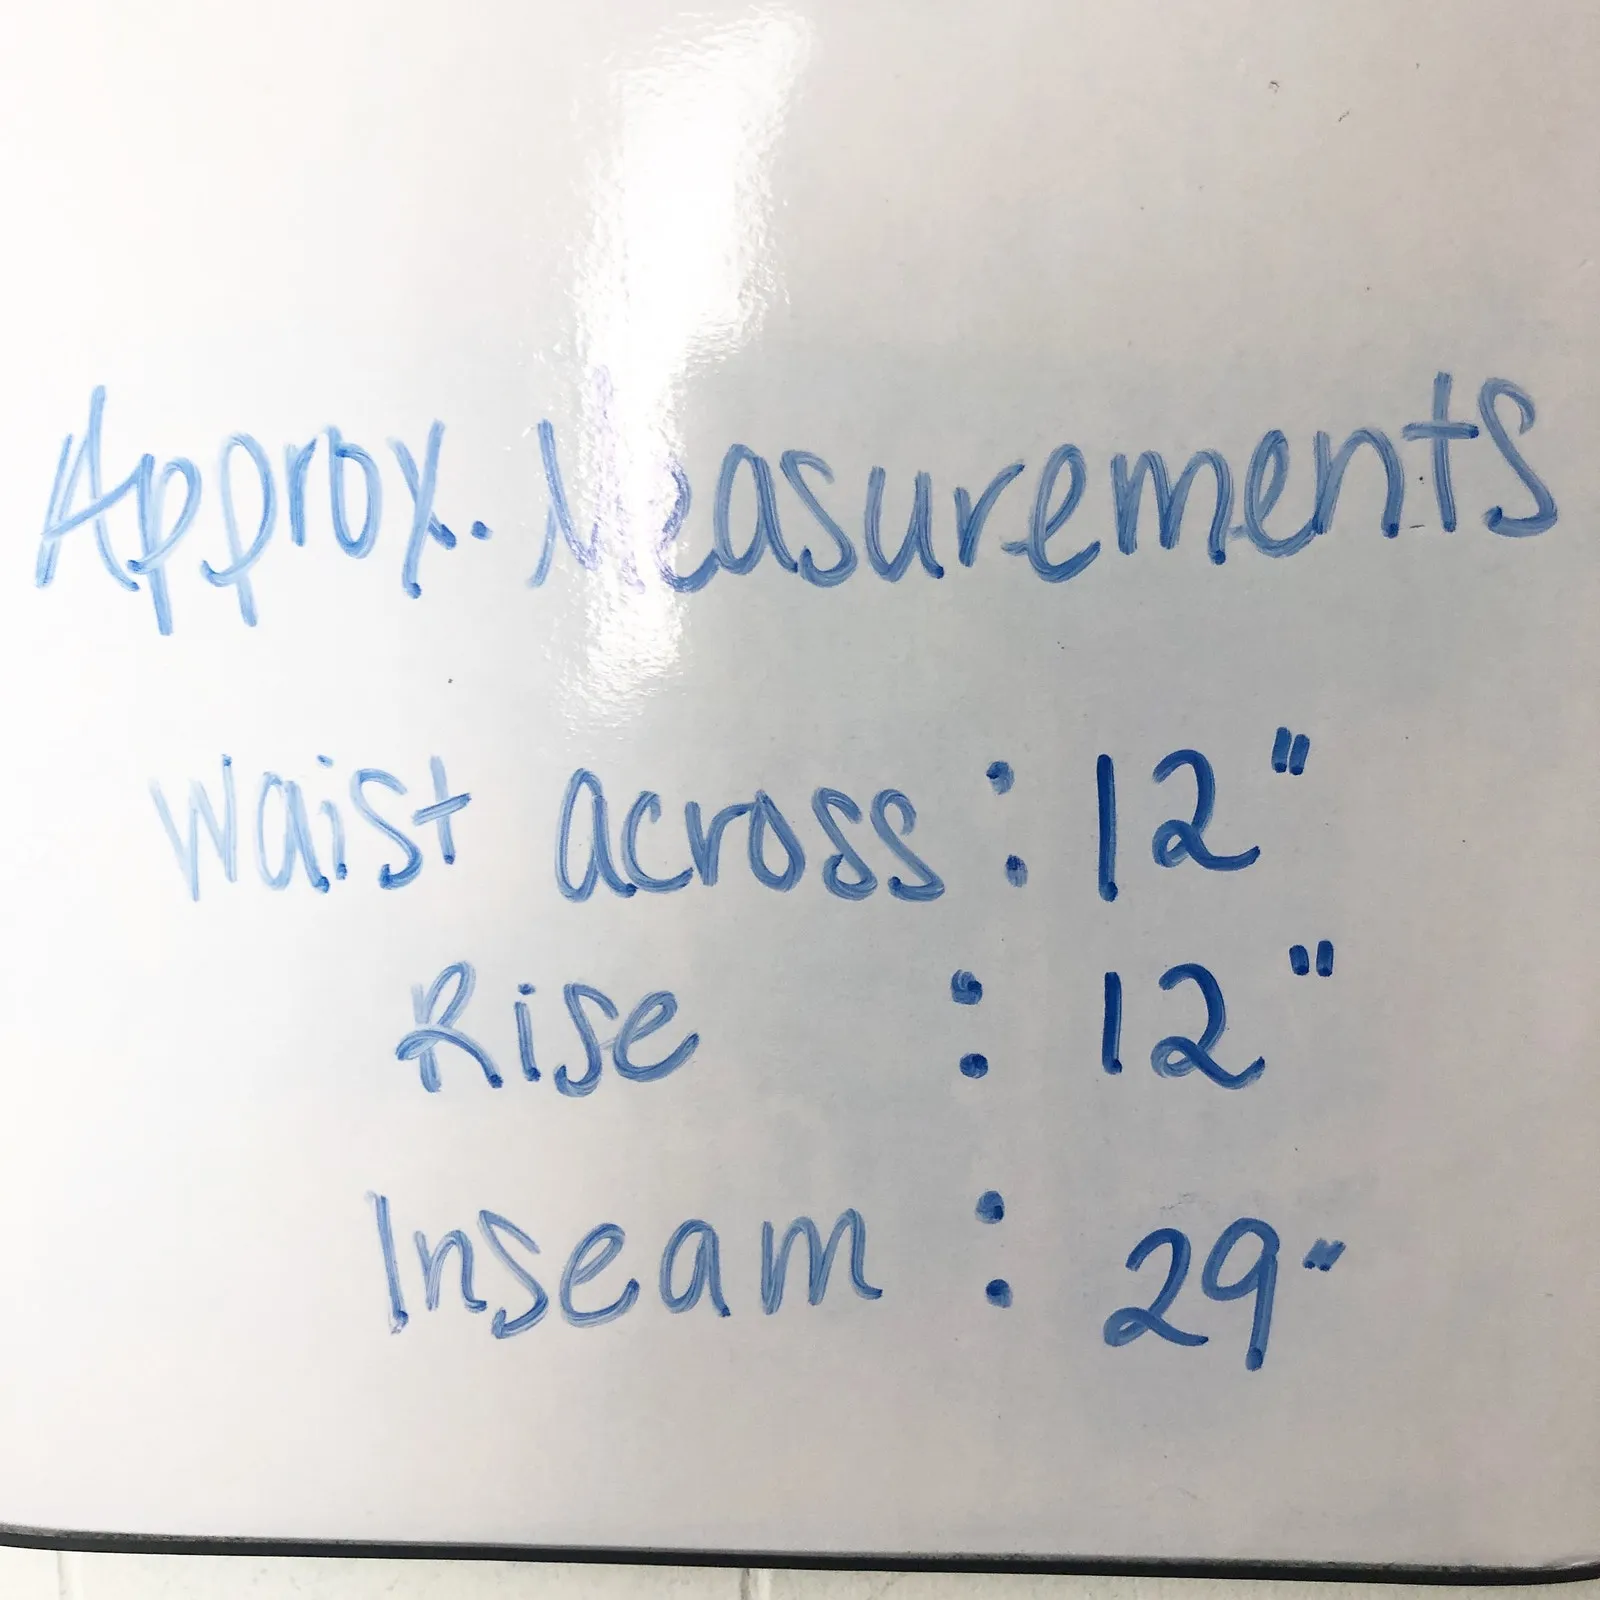 Approx. Measurements
Waist across : 12"
Rise : 12"
Inseam : 29"